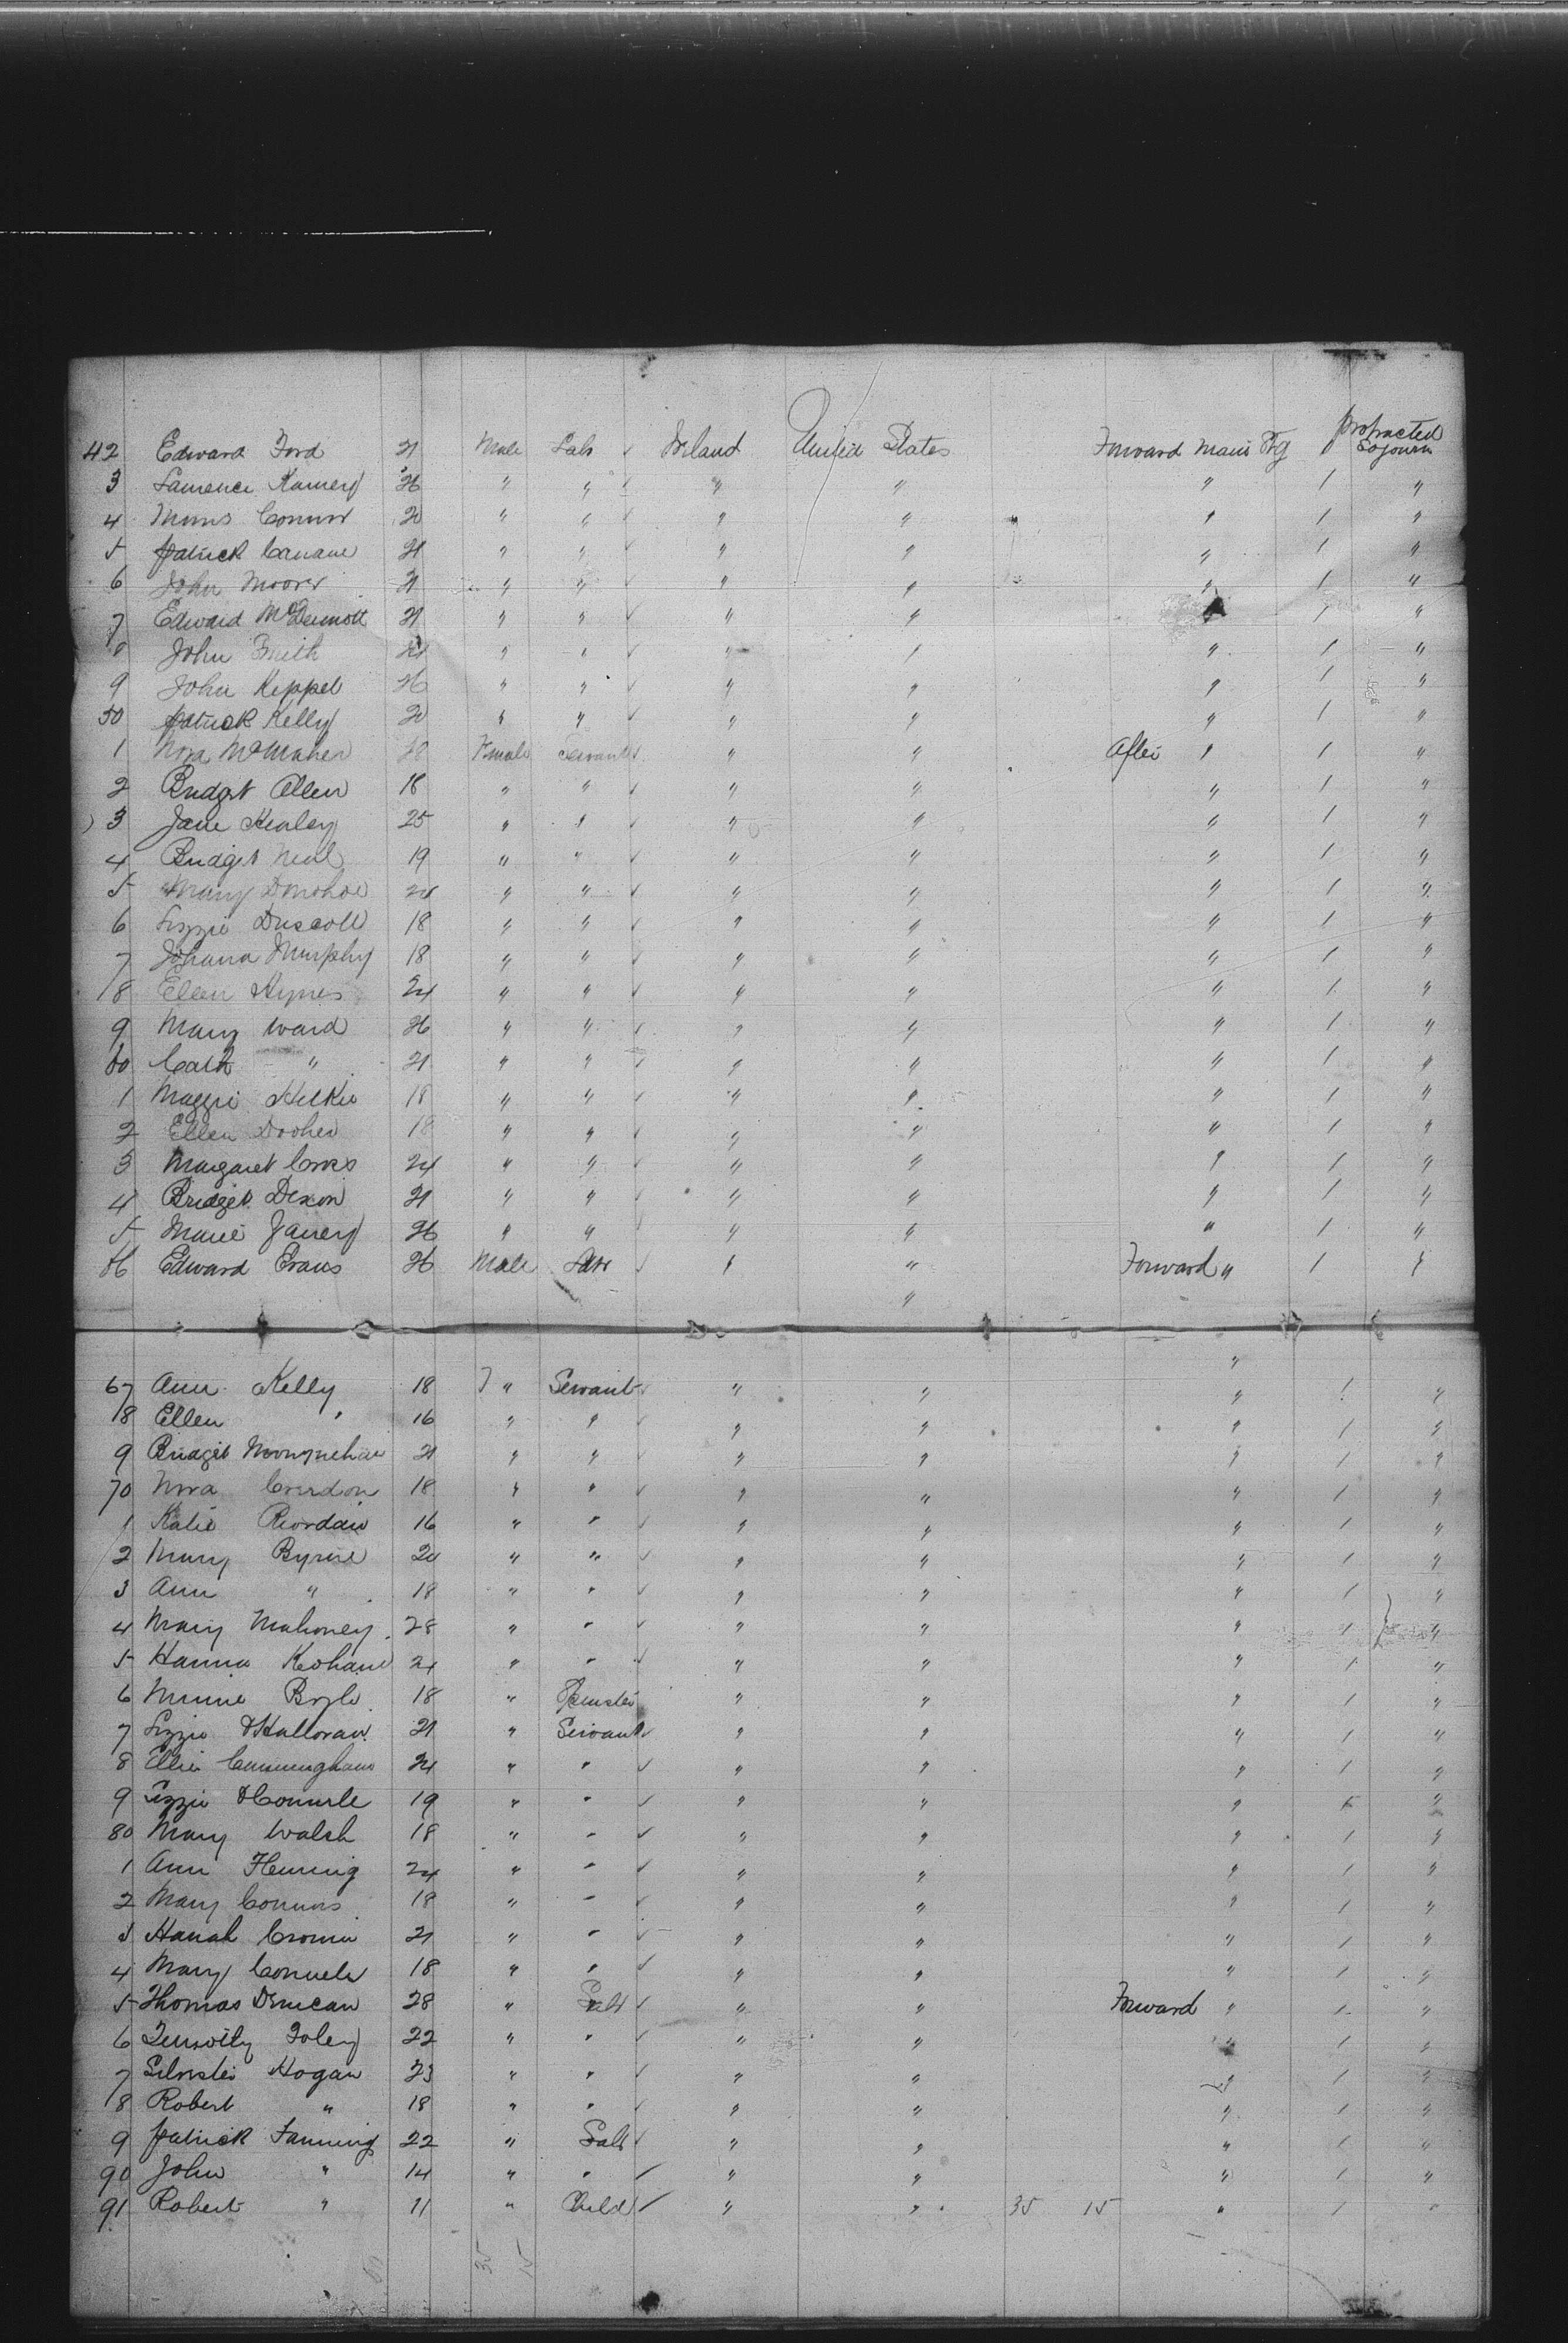 42 Edward Ford 21 Male Lab ✓ Ireland United States Forward Main Fg 1 protracted Sojourn
3 Laurence 26 " " ✓ " " " 1 "
4 Connor 20 " " ✓ " " " 1 "
5 Patrick Canane 21 " " ✓ " " " 1 "
6 John Moore 21 " " ✓ " " " 1 "
7 Edward McDermott 21 " " ✓ " " " 1 "
8 John Smith 21 " " ✓ " " " 1 "
9 John Keppel 26 " " ✓ " " " 1 "
50 Patrick Kelly 20 " " ✓ " " " 1 "
1 Nora McMaher Female Servant ✓ " " After " 1 "
2 Bridget Allen 18 " " ✓ " " " 1 "
3 Jane Kenley 25 " " ✓ " " " 1 "
4 Bridget Neil 19 " " ✓ " " " 1 "
5 Mary Donohoe 24 " " ✓ " " " 1 "
6 Lizzie Driscoll 18 " " ✓ " " " 1 "
7 Johana Murphy 18 " " ✓ " " " 1 "
8 Ellen Hynes 24 " " ✓ " " " 1 "
9 Mary Ward 26 " " ✓ " " " 1 "
60 Cath " 21 " " ✓ " " " 1 "
1 Maggie 18 " " ✓ " " " 1 "
2 Ellen Dooher 18 " " ✓ " " " 1 "
3 Margaret Cross 24 " " ✓ " " " 1 "
4 Bridget Dixon 21 " " ✓ " " " 1 "
5 26 " " ✓ " " " 1 "
66 Edward Evans 26 Male Lab ✓ " " Forward " 1 "
"
"
67 Ann Kelly 18 F " Servant ✓ " " " 1 "
8 Ellen " 16 " " ✓ " " " 1 "
9 Bridget 21 " " ✓ " " " 1 "
70 Nora 18 " " ✓ " " " 1 "
1 Katie Riordan 16 " " ✓ " " " 1 "
2 Mary Byrne 20 " " ✓ " " " 1 "
3 Ann " 18 " " ✓ " " " 1 "
4 Mary Mahoney 28 " " ✓ " " " 1 "
5 Hanna Keohane 21 " " ✓ " " " 1 "
6 Minnie Boyle 18 " Spinster " " " 1 "
7 Lizzie O'Halloran 21 " Servant ✓ " " " 1 "
8 Ellie Cunningham 24 " " ✓ " " " 1 "
9 Lizzie 19 " " ✓ " " " 1 "
80 Mary Walsh 18 " " ✓ " " " 1 "
1 Ann Fleming 24 " " ✓ " " " 1 "
2 Mary Connors 18 " " ✓ " " " 1 "
3 Hanah Cronin 21 " " ✓ " " " 1 "
4 Mary 18 " " ✓ " " " 1 "
5 Thomas Duncan 28 " Lab ✓ " " Forward " 1 "
6 Foley 22 " " ✓ " " " 1 "
7 Silvester Hogan 23 " " ✓ " " " 1 "
8 Robert " 18 " " ✓ " " " 1 "
9 Patrick Fanning 22 " Lab ✓ " " " 1 "
90 John " 14 " " ✓ " " " 1 "
91 Robert " 11 " Child ✓ " " 35 15 " 1 "
35 15